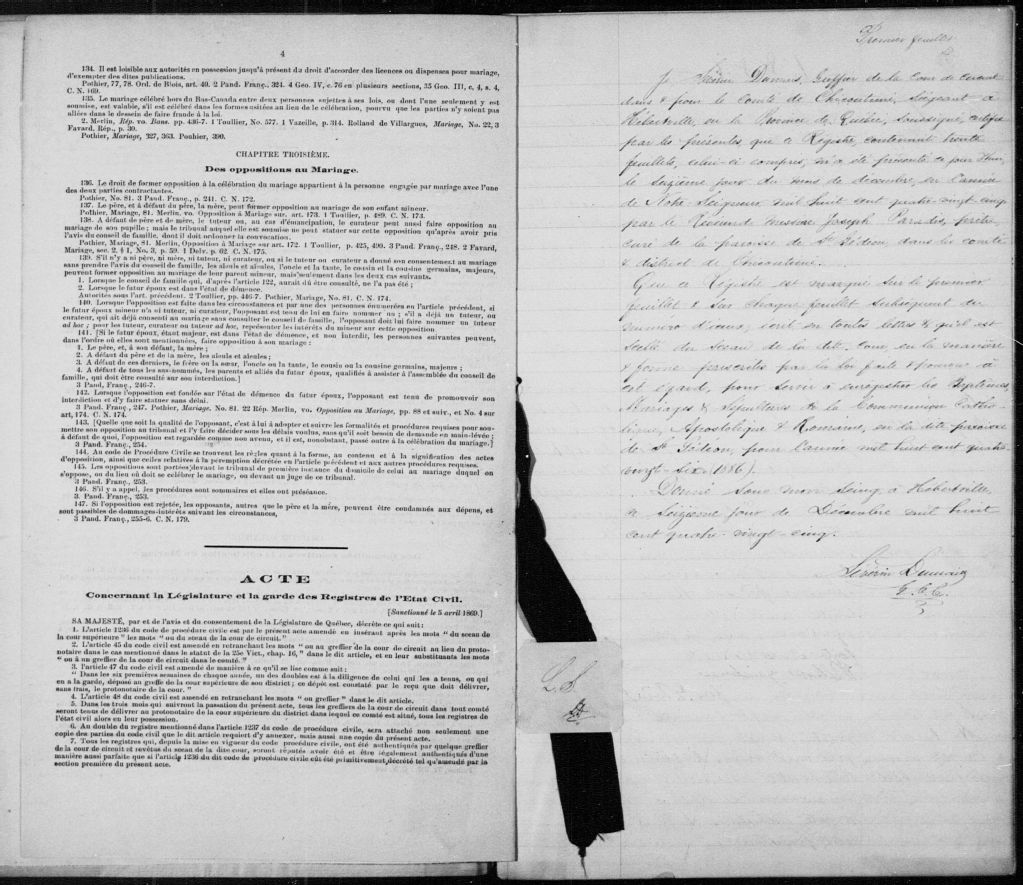 4
134. Il est loisible aux autorités en possession jusqu'à présent du droit d'accorder des licences ou dispenses pour mariage,
d'exempter des dites publications.
Pothier, 77, 78. Ord. de Blois, art. 40. 2 Pand. Franç., 324. 4 Geo. IV, c. 76 en plusieurs sections, 35 Geo. III, c, 4, s. 4,
C. N. 169.
135. Le mariage célébré hors du Bas-Canada entre deux personnes sujettes à ses lois, ou dont l'une seulement y est
soumise, est valable, s'il est célébré dans les formes usitées au lieu de la célébration, pourvu que les parties n'y soient pas
allées dans le dessein de faire fraude à la loi.
2. Merlin, Rép. vo. Bans. pp. 436-7. 1 Toullier, No. 577. 1 Vazeille, p. 314. Rolland de Villargues, Mariage, No. 22, 3
Favard, Rép., p. 39.
Pothier, Mariage, 327, 363. Pouhier, 390.
CHAPITRE TROISIÈME.
Des oppositions au Mariage.
136. Le droit de former opposition à la célébration du mariage appartient à la personne engagée par mariage avec l'une
des deux parties contractantes.
Pothier, No. 81. 3 Pand. Franç., p. 241. C. N. 172.
137. Le père, et à défaut du père, la mère, peut former opposition au mariage de son enfant mineur.
Pothier, Mariage, 81. Merlin, vo. Opposition à Mariage sur. art. 173. 1 Toullier, p. 489. C. N. 173.
138. A défaut de père et de mère, le tuteur ou, au cas d'émancipation, le curateur peut aussi faire opposition au
mariage de son pupille; mais le tribunal auquel elle est soumise ne peut statuer sur cette opposition qu'après avoir pris
l'avis du conseil de famille, dont il doit ordonner la convocation.
Pothier, Mariage, 81. Merlin, Opposition à Mariage sur art. 172. 1 Toullier, p. 425, 490. 3 Pand. Franç., 248. 2 Favard,
Mariage, sec. 2. § I, No. 3, p. 59. 1 Delv. p. 62. C. N. 175.
139. S'il n'y a ni père, ni mère, ni tuteur, ni curateur, ou si le tuteur ou curateur a donné son consentement au mariage
sans prendre l'avis du conseil de famille, les aïeuls et aïeules, l'oncle et la tante, le cousin et la cousine germains, majeurs,
peuvent former opposition au mariage de leur parent mineur, mais seulement dans les deux cas suivants.
1. Lorsque le conseil de famille qui, d'après l'article 122, aurait dû être consulté, ne l'a pas été;
2. Lorsque le futur époux est dans l'état de démence.
Autorités sous l'art. précédent. 2 Toullier, pp. 446-7. Pothier, Mariage, No. 81. C. N. 174.
140. Lorsque l'opposition est faite dans les circonstances et par une des personnes énumérées en l'article précédent, si
le futur époux mineur n'a ni tuteur, ni curateur, l'opposant est tenu de lui en faire nommer un; s'il a déjà un tuteur, ou
curateur, qui ait déjà consenti au mariage sans consulter le conseil de famille, l'opposant doit lui faire nommer un tuteur
ad hoc; pour les tuteur, curateur ou tuteur ad hoc, représenter les intérêts du mineur sur cette opposition.
141. [Si le futur époux, étant majeur, est dans l'état de démence, et non interdit, les personnes suivantes peuvent,
dans l'ordre où elles sont mentionnées, faire opposition à son mariage:
1. Le père, et, à son défaut, la mère;
2. A défaut du père et de la mère, les aïeuls et aïeules;
3. A défaut de ces derniers, le frère ou la sœur, l'oncle ou la tante, le cousin ou la cousine germains, majeurs;
4. A défaut de tous les sus-nommés, les parents et alliés du futur époux, qualifiés à assister à l'assemblée du conseil de
famille, qui doit être consulté sur son interdiction.]
3 Pand. Franç., 246-7.
142. Lorsque l'opposition est fondée sur l'état de démence du futur époux, l'opposant est tenu de promouvoir son
interdiction et d'y faire statuer sans délai.
3 Pand. Franç., 247. Pothier, Mariage. No. 81. 22 Rép. Merlin, vo. Opposition au Mariage, pp. 88 et suiv., et No. 4 sur
art, 174. C. N. 174.
143. [Quelle que soit la qualité de l'opposant, c'est à lui à adopter et suivre les formalités et procédures requises pour sou-
mettre son opposition au tribunal et d'y faire décider sous les délais voulus, sans qu'il soit besoin de demande en main-levée;
à défaut de quoi, l'opposition est regardée comme non avenu, et il est, nonobstant, passé outre à la célébration du mariage.]
3 Pand. Franç., 254.
144. Au code de Procédure Civile se trouvent les règles quant à la forme, au contenu et à la signification des actes
d'opposition, ainsi que celles relatives à la péremption décrétée en l'article précédent et aux autres procédures requises.
145. Les oppositions sont portées devant le tribunal de première instance du domicile de celui au mariage duquel on
s'oppose, ou du lieu où doit se célébrer le mariage, ou devant un juge de ce tribunal.
3 Pand. Franç., 253.
146. S'il y a appel, les procédures sont sommaires et elles ont préséance.
3. Pand. Franç., 253.
147. Si l'opposition est rejetée, les opposants, autres que le père et la mère, peuvent être condamnés aux dépens, et
sont passibles de dommages-intérêts suivant les circonstances,
3 Pand. Franç., 255-6. C. N. 179.
ACTE
Concernant la Législature et la garde des Registres de l'Etat Civil.
[Sanctionné le 5 avril 1869.]
SA MAJESTÉ, par et de l'avis et du consentement de la Législature de Québec, décrète ce qui suit:
1. L'article 1236 du code de procédure civile est par le présent acte amendé en insérant après les mots " du sceau de
la cour supérieure " les mots " ou du sceau de la cour de circuit."
2. L'article 45 du code civil est amendé en retranchant les mots " ou au greffier de la cour de circuit au lieu du proto-
notaire dans le cas mentionné dans le statut de la 25e Vict., chap. 16, " dans le dit article, et en leur substituants les mots
" ou à un greffier de la cour de circuit dans le comté."
3. l'article 47 du code civil est amendé de manière à ce qu'il se lise comme suit:
" Dans les six premières semaines de chaque année, un des doubles est à la diligence de celui qui les a tenus, ou qui
en a la garde, déposé au greffe de la cour supérieure de son district; ce dépôt est constaté par le reçu que doit délivrer,
sans frais, le protonotaire de la cour."
4. L'article 48 du code civil est amendé en retranchant les mots " ou greffier " dans le dit article.
5. Dans les trois mois qui suivront la passation du présent acte, tous les greffiers de la cour de circuit dans tout comté
seront tenus de délivrer au protonotaire de la cour supérieure du district dans lequel ce comté est situé, tous les registres de
l'état civil alors en leur possession.
6. Au double du registre mentionné dans l'article 1237 du code de procédure civile, sera attaché non seulement une
copie des parties du code civil que le dit article requiert d'y annexer, mais aussi une copie du présent acte.
7. Tous les registres qui, depuis la mise en vigueur du code procédure civile, ont été authentiqués par quelque greffier
de la cour de circuit et revêtus du sceau de la dite cour, seront réputés avoir été et être légalement authentiqués d'une
manière aussi parfaite que si l'article 1236 du dit code de procédure civile eût été primitivement décrété tel qu'amendé par la
section première du présent acte.
Premier feuillet
J. Sévérin Dumais, Greffier de la Cour de circuit
dans & pour le Comté de Chicoutimi, Siégeant à
Hébertville, en la Province de Québec, soussigné, certifie
par les présentes, que ce Régistre, contenant trente
feuillets, celui-ci compris, m'a été présenté ce jour d'hui,
le seizième jour du mois de décembre, en l'année
de Notre Seigneur, mil huit cent quatre vingt cinq
par le Révérend messire Joseph Paradis, prêtre
curé de la paroisse de St Gédéon, dans le comté
& district de Chicoutimi.
Que ce Régistre est marqué sur le premier
feuillet & sur chaque feuillet subséquent du
numéro d'iceux, écrit en toutes lettres & qu'il est
scellé du Sceau de la dite Cour, en la manière
& forme prescrite par la loi faite & pourvue à
cet égard, pour servir à enregistrer les Baptêmes
Mariages & Sépultures de la Communion Catho-
lique, Apostolique & Romaine, en la dite paroisse
de St Gédéon, pour l'année mil huit cent quatre
vingt-six (1886).
Donné sous mon Seing, à Hébertville,
ce Seizième jour de Décembre mil huit
cent quatre vingt-cinq.
Sévérin Dumais
G. C. C.
L. S.